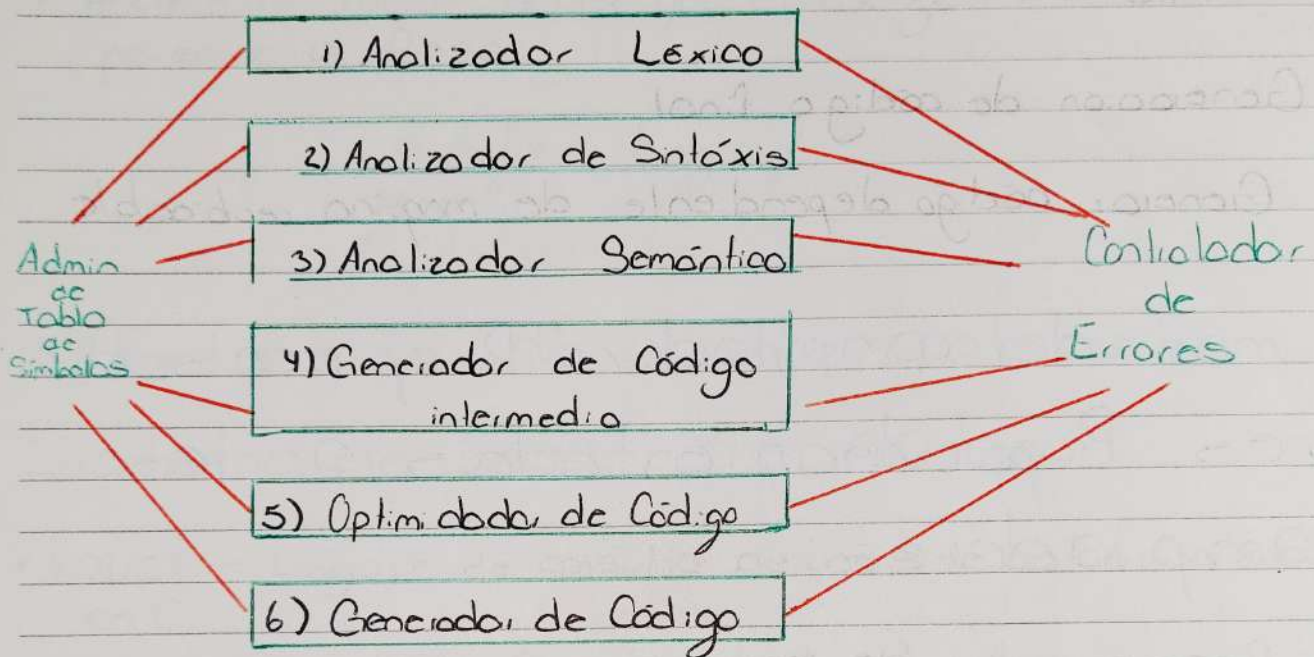 1) Analizador Léxico
2) Analizador de Sintáxis
3) Analizador Semántico
4) Generador de Código
intermedio
5) Optimidador de Código
6) Generador de Código
Admin
de
Tabla
de
Símbolos
Controlador
de
Errores
Generación de código final